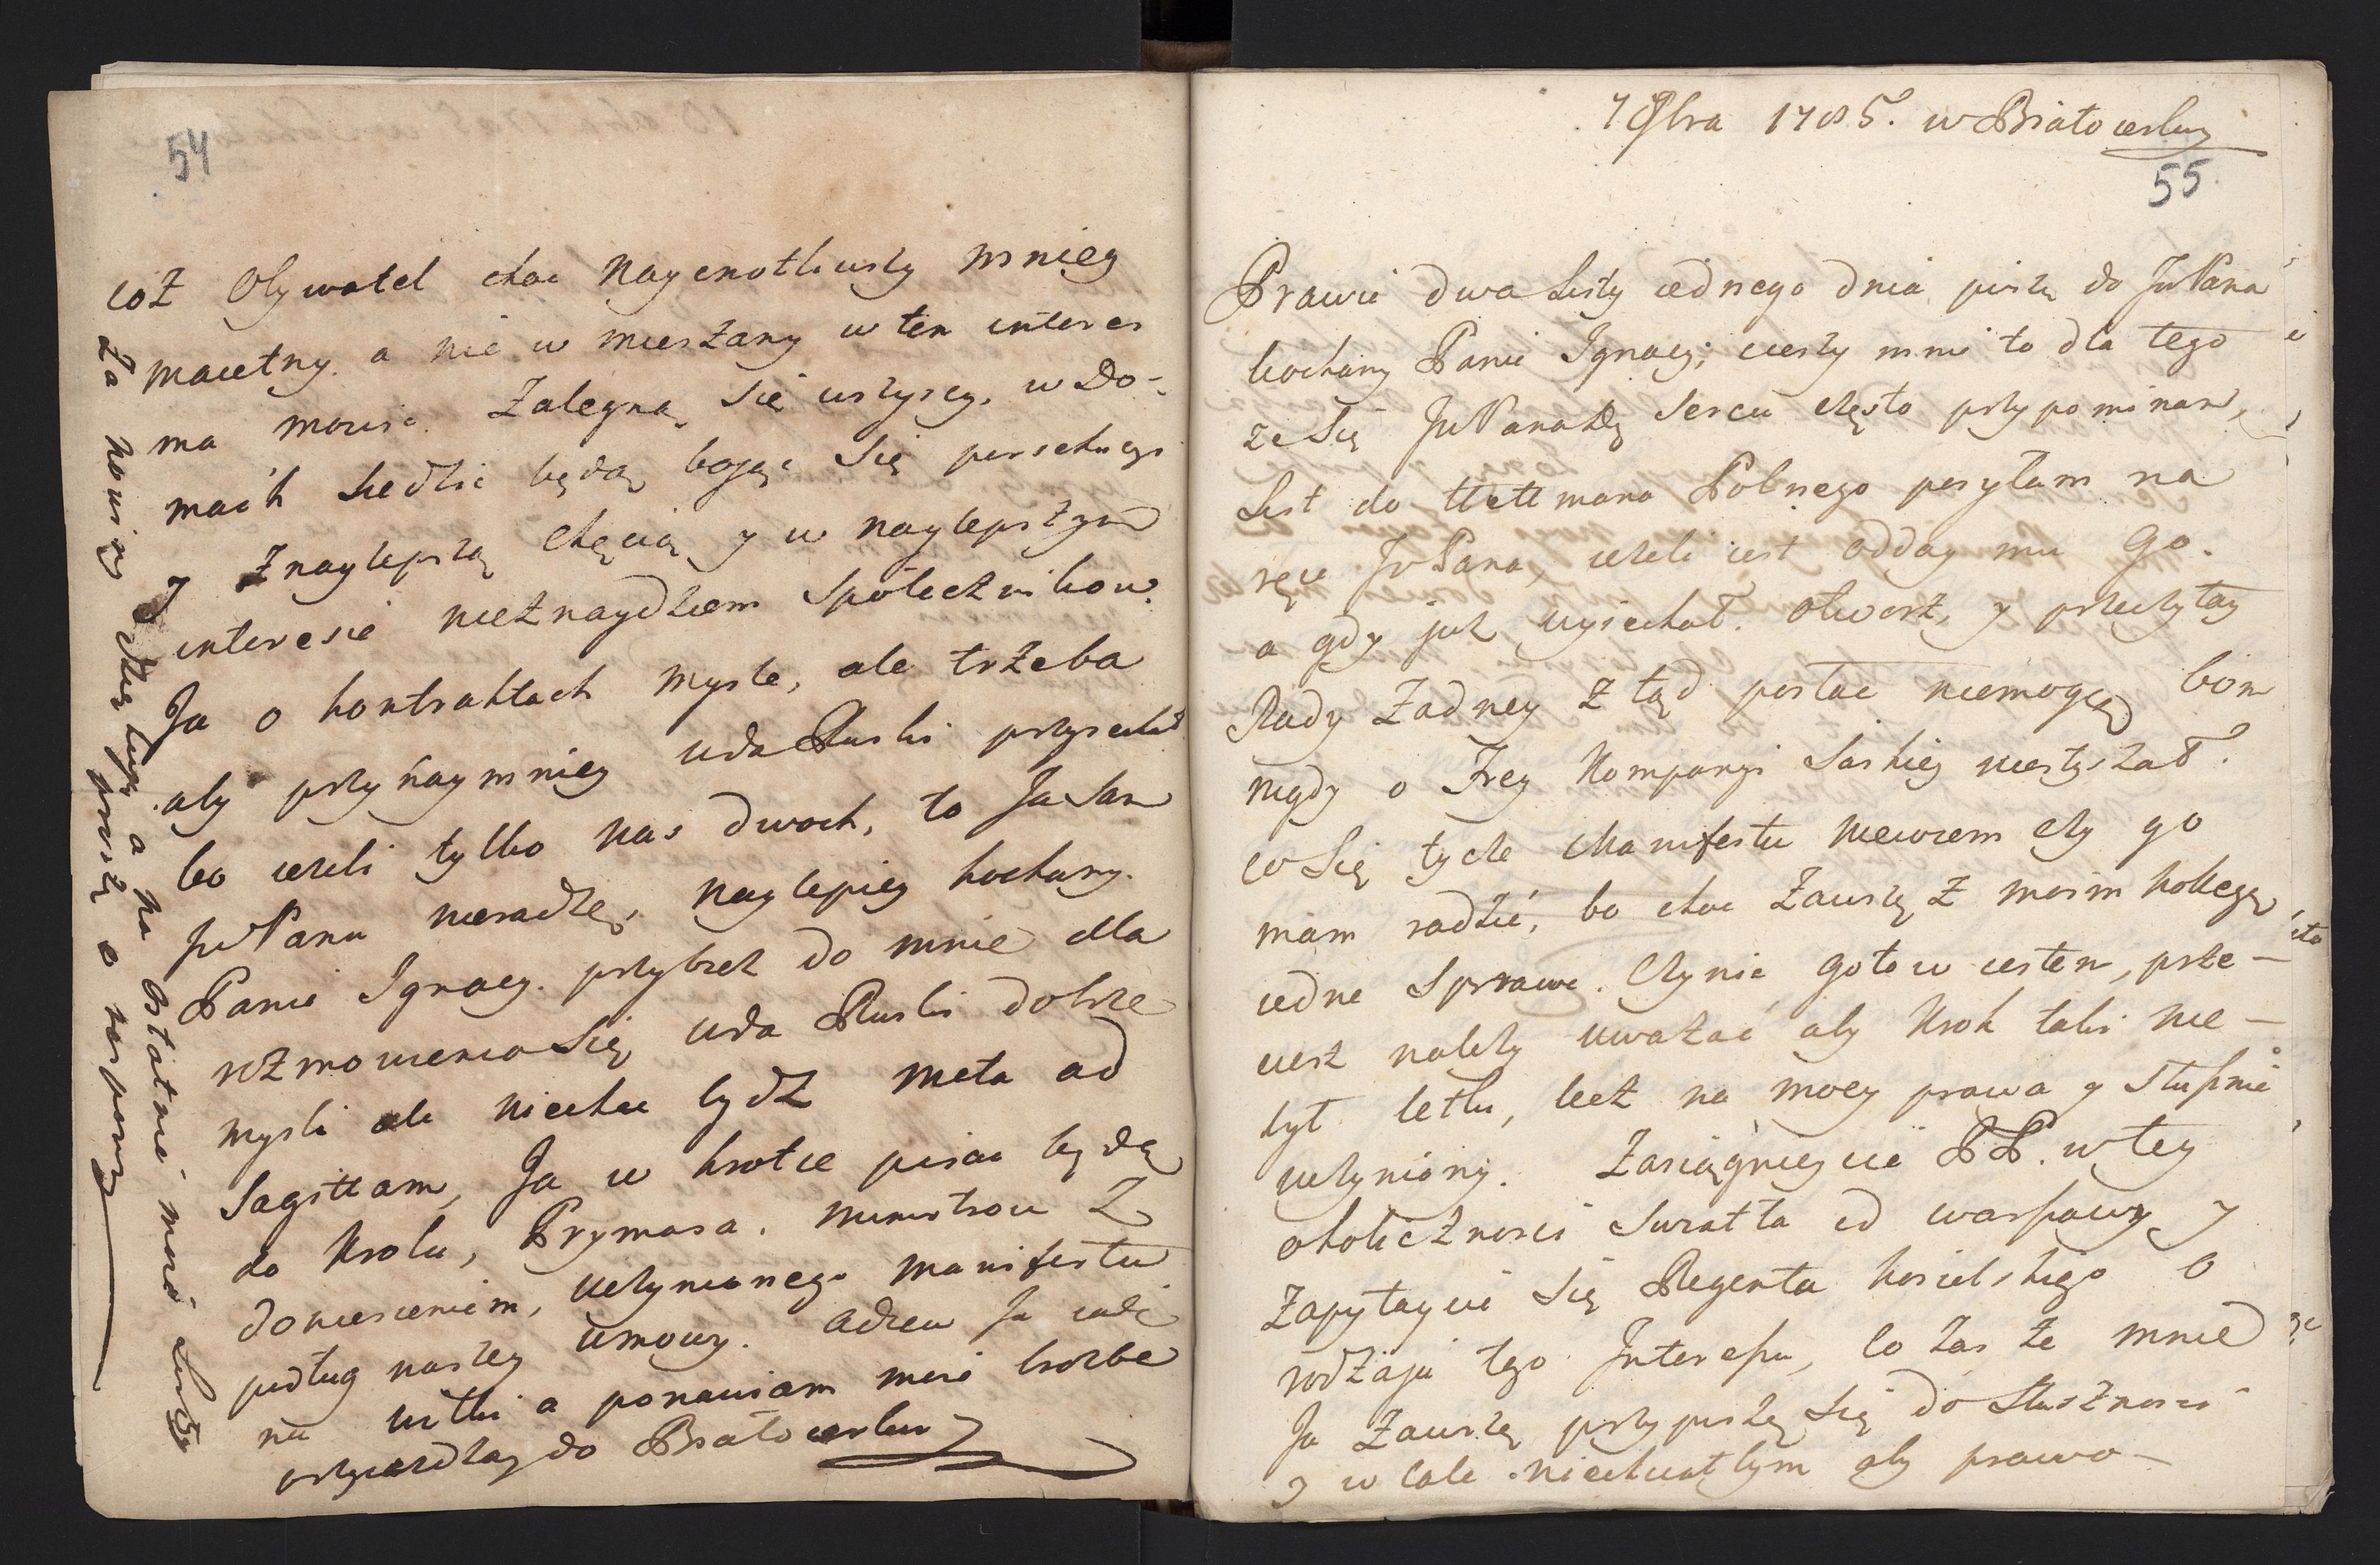 54
coż Obywatel choc Naycnotliwszy mniey
maiętny. a nie w mieszany w ten interes
ma mowic. Zalegną się wszyscy. w Do-
mach siedzic będą boiąc się persekucyi
y z naylepszą chęcią y w naylepszym
interesie nieznaydziem społecznikow.
Ja o kontraktach mysle, ale trzeba
aby przynaymniey uda Ruski przyiechał
bo ieżeli tylko nas dwoch, to Ja sam
JWPanu nieradzę, naylepiey kochany.
Panie Ignacy. przybież do mnie dla
rozmowienia się uda Ruski dobrze
mysli ale niechce bydz meta ad
Sagittam, Ja w krotce pisac będę
do Krola, Prymasa. ministrow z
doniesieniem, uczynionego manifestu
podług naszey umowy. adieu Ja iadę
na wilki a ponawiam moie prozbe
przyiezdzay do Białocerkwi
Za nowiny dziękuię a na ostatnie moie listy
proszę o respons
7 8bra 1785. w Białocerkwi
55.
Prawie dwa Listy iednego dnia piszę do JWPana
kochany Panie Ignacy; cieszy mnie to dla tego
ze się JWPana sercu często przypominam,
List do Hettmana Polnego posyłam na
ręce JWPana, ieżeli iest odday mu go.
a gdy iuż wyiechał. otworz, y przeczytay
Rady żadney z tąd posłac niemogę bom
nigdy o Frey Kompanyi Saskiey niesłyszał.
co się tycze Manifestu niewiem czy go
mam radzić, bo choc zawszę z moim kollegą
iedne sprawe. Czynic gotow iestem, prze-
ciesz należy uważać aby Krok taki nie-
był letki, lecz na mocy prawa y słusznie
uczyniony. Zasiągnieycie PP. w tey
okoliczności Swiatła od warszawy y
zapytaycie się Regenta kosielskiego o
rodzaju tego Interessu, Co zas że mnie
Ja zawszę przypiszę się do Słuszności
y w Cale niechciałbym aby prawo-